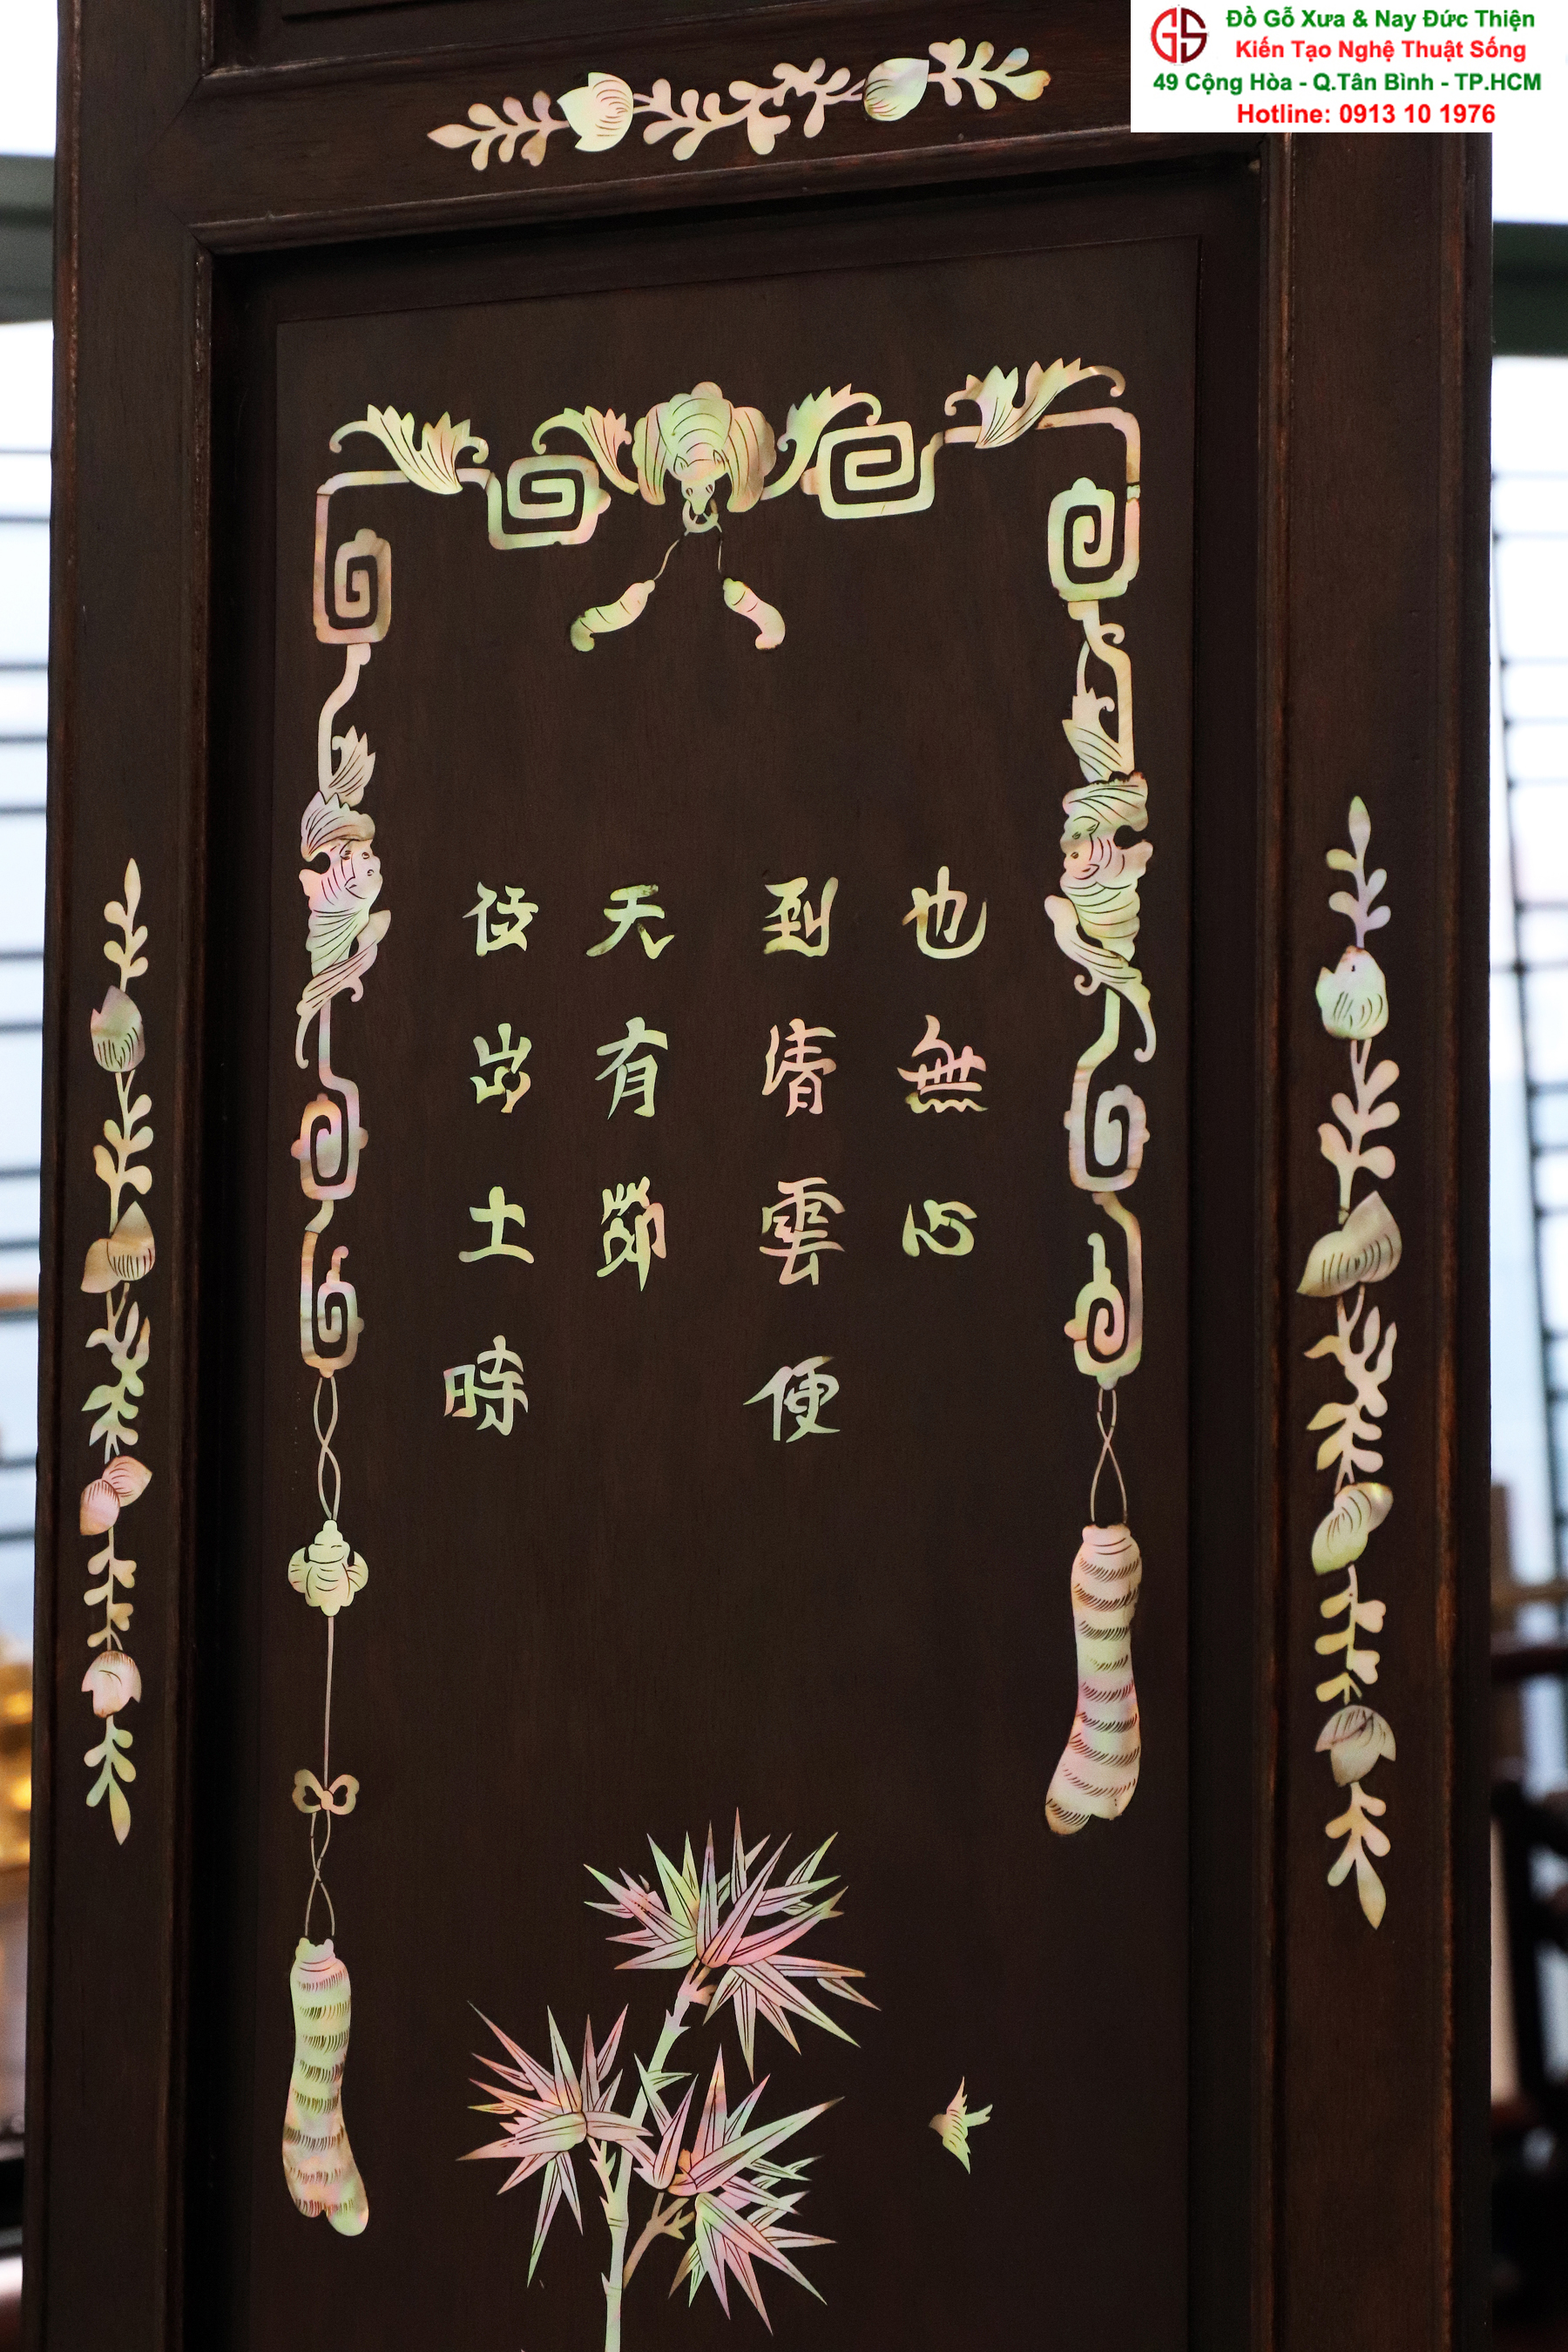 Đồ Gỗ Xưa & Nay Đức Thiện
Kiến Tạo Nghệ Thuật Sống
49 Cộng Hòa - Q.Tân Bình - TP.HCM
Hotline: 0913 10 1976
GS
出土時
天有節
到清雲便
也無心